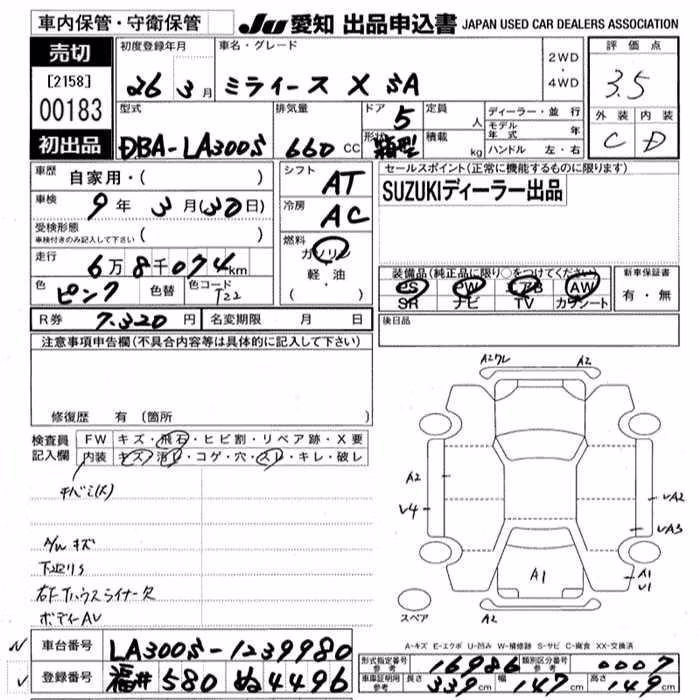 車内保管・守衛保管
Ju 愛知 出品申込書 JAPAN USED CAR DEALERS ASSOCIATION
売切
[2158]
00183
初出品
初度登録年月
26年 3月
車名・グレード
ミライース X SA
2WD
・
4WD
評価点
3.5
外装 内装
C D
型式
DBA-LA300S
排気量
660 CC
ドア 5
形状 箱型
定員 人
積載 kg
ディーラー・並行
モデル年式 年
ハンドル 左・右
車歴 自家用・( )
車検 9年 3月(30日)
受検形態
車検付きのみ記入して下さい ( )
走行 6万8千074km
色 ピンク 色替 色コード T22
R券 7,320円 名変期限 月 日
シフト AT
冷房 AC
燃料
ガソリン
軽・油
( )
セールスポイント(正常に機能するものに限ります)
SUZUKIディーラー出品
装備品(純正品に限り○をつけてください)
PS PW エアB AW
SR ナビ TV カワシート
新車保証書
有・無
後日品
注意事項申告欄(不具合内容等は具体的に記入して下さい)
修復歴 有 (箇所 )
検査員記入欄
FW キズ・飛石・ヒビ割・リペア跡・X要
内装 キズ・汚れ・コゲ・穴・スレ・キレ・破レ
A/W キズ
下廻りS
右Fハウスライナー欠
ボディーAU
A2ワレ A2
A2
U4
UA2
UA3
A1
A1
U1
A2
スペア
A-キズ E-エクボ U-凹み W-補修跡 S-サビ C-腐食 XX-交換済
車台番号 LA300S-1239980
登録番号 福井 580 ぬ 4496
形式指定番号 参考 16986 類別区分番号 参考 0007
車庫証明用 参考 長さ 339cm 幅 147cm 高さ 149cm